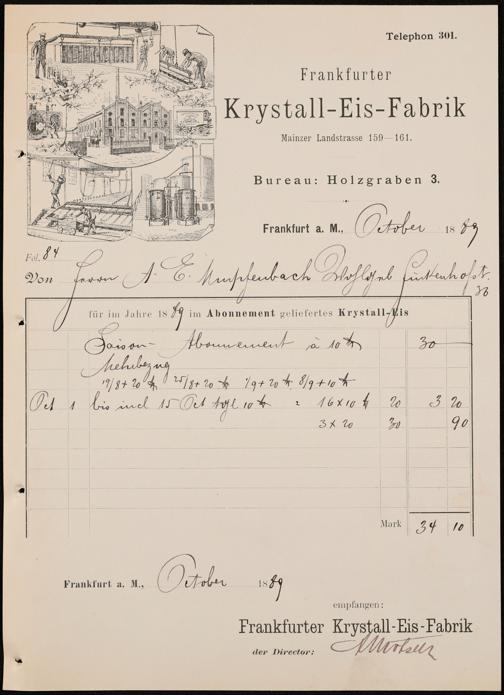 Telephon 301.
Frankfurter
Krystall-Eis-Fabrik
Mainzer Landstrasse 159—161.
Bureau: Holzgraben 3.
Frankfurt a. M., October 1889
Fol. 84
Von Herrn A. E. Wohlgeb
36
für im Jahre 1889 im Abonnement geliefertes Krystall-Eis
Saison-Abonnement à 10 ℔ 30
Mehrbezug
19/8+20 ℔ 25/8+20 ℔ 1/9+20 ℔ 8/9+10 ℔
Oct 1 bis incl 15 Oct tgl 10 ℔ = 16 x 10 ℔ 20 3 20
3 x 20 30 90
Mark 34 10
Frankfurt a. M., October 1889
empfangen:
Frankfurter Krystall-Eis-Fabrik
der Director: